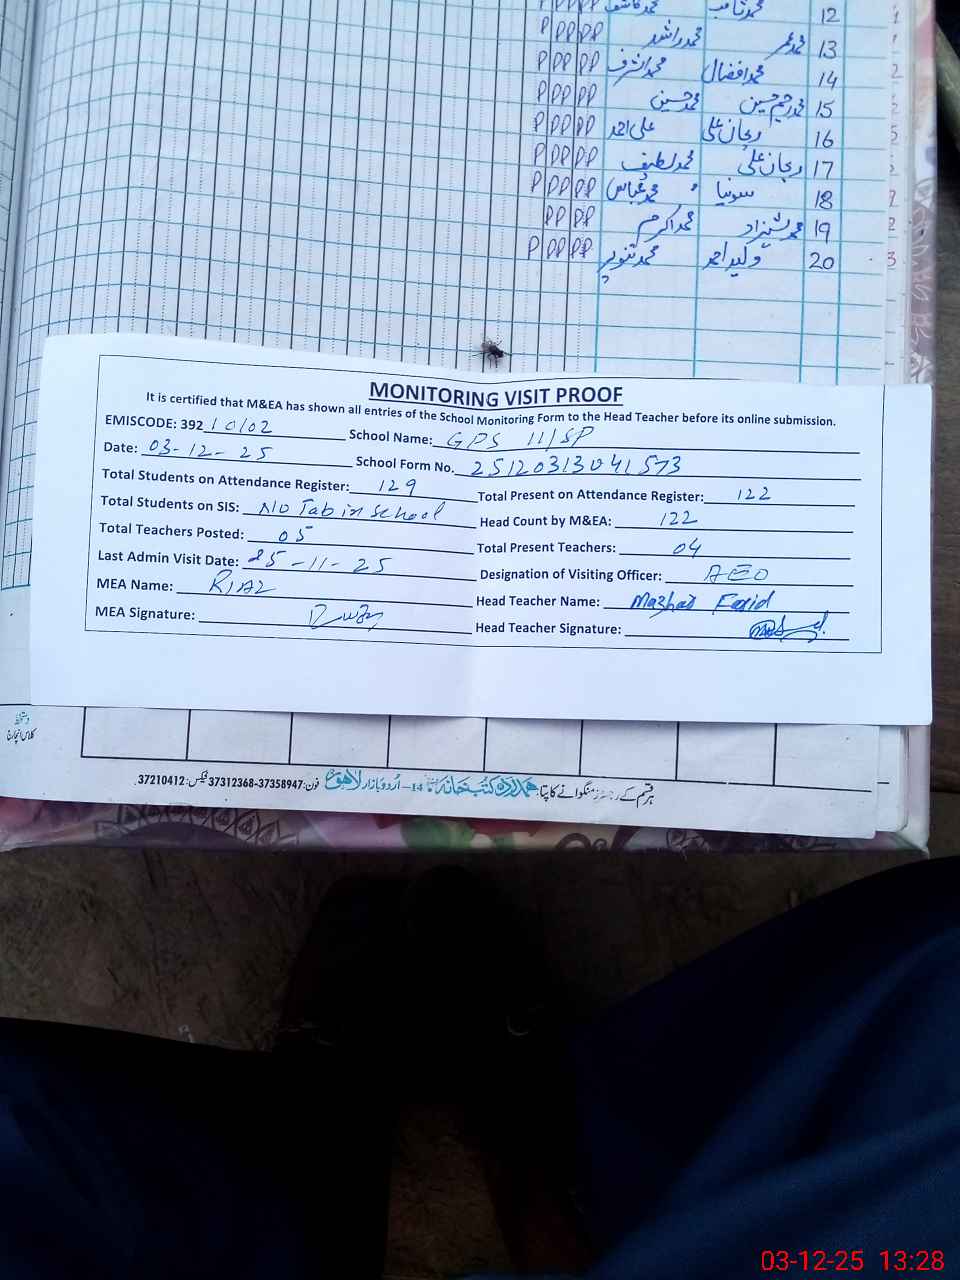 12 محمد ثاقب محمد کاشف P PP PP
13 محمد عمر محمد راشد P PP PP
14 محمد افضال محمد اشرف P PP PP
15 محمد رحیم حسین محمد حسین P PP PP
16 ریحان علی علی احمد P PP PP
17 ریحان علی محمد لطیف P PP PP
18 سونیا محمد عباس P PP PP
19 محمد شہزاد محمد اکرم PP PP
20 ولید احمد محمد تنویر P PP PP
MONITORING VISIT PROOF
It is certified that M&EA has shown all entries of the School Monitoring Form to the Head Teacher before its online submission.
EMISCODE: 392 10102 School Name: GPS 11/SP
Date: 03-12-25 School Form No. 25120313041573
Total Students on Attendance Register: 129 Total Present on Attendance Register: 122
Total Students on SIS: No Tab in school Head Count by M&EA: 122
Total Teachers Posted: 05 Total Present Teachers: 04
Last Admin Visit Date: 25-11-25 Designation of Visiting Officer: AEO
MEA Name: RIAZ Head Teacher Name: Mazhar Farid
MEA Signature: Head Teacher Signature:
دستخط
کلاس انچارج
ہر قسم کے رجسٹرز منگوانے کا پتا: ہمدرد کتب خانہ 14-اُردو بازار لاہور فون: 37312368-37358947 فیکس: 37210412
03-12-25 13:28